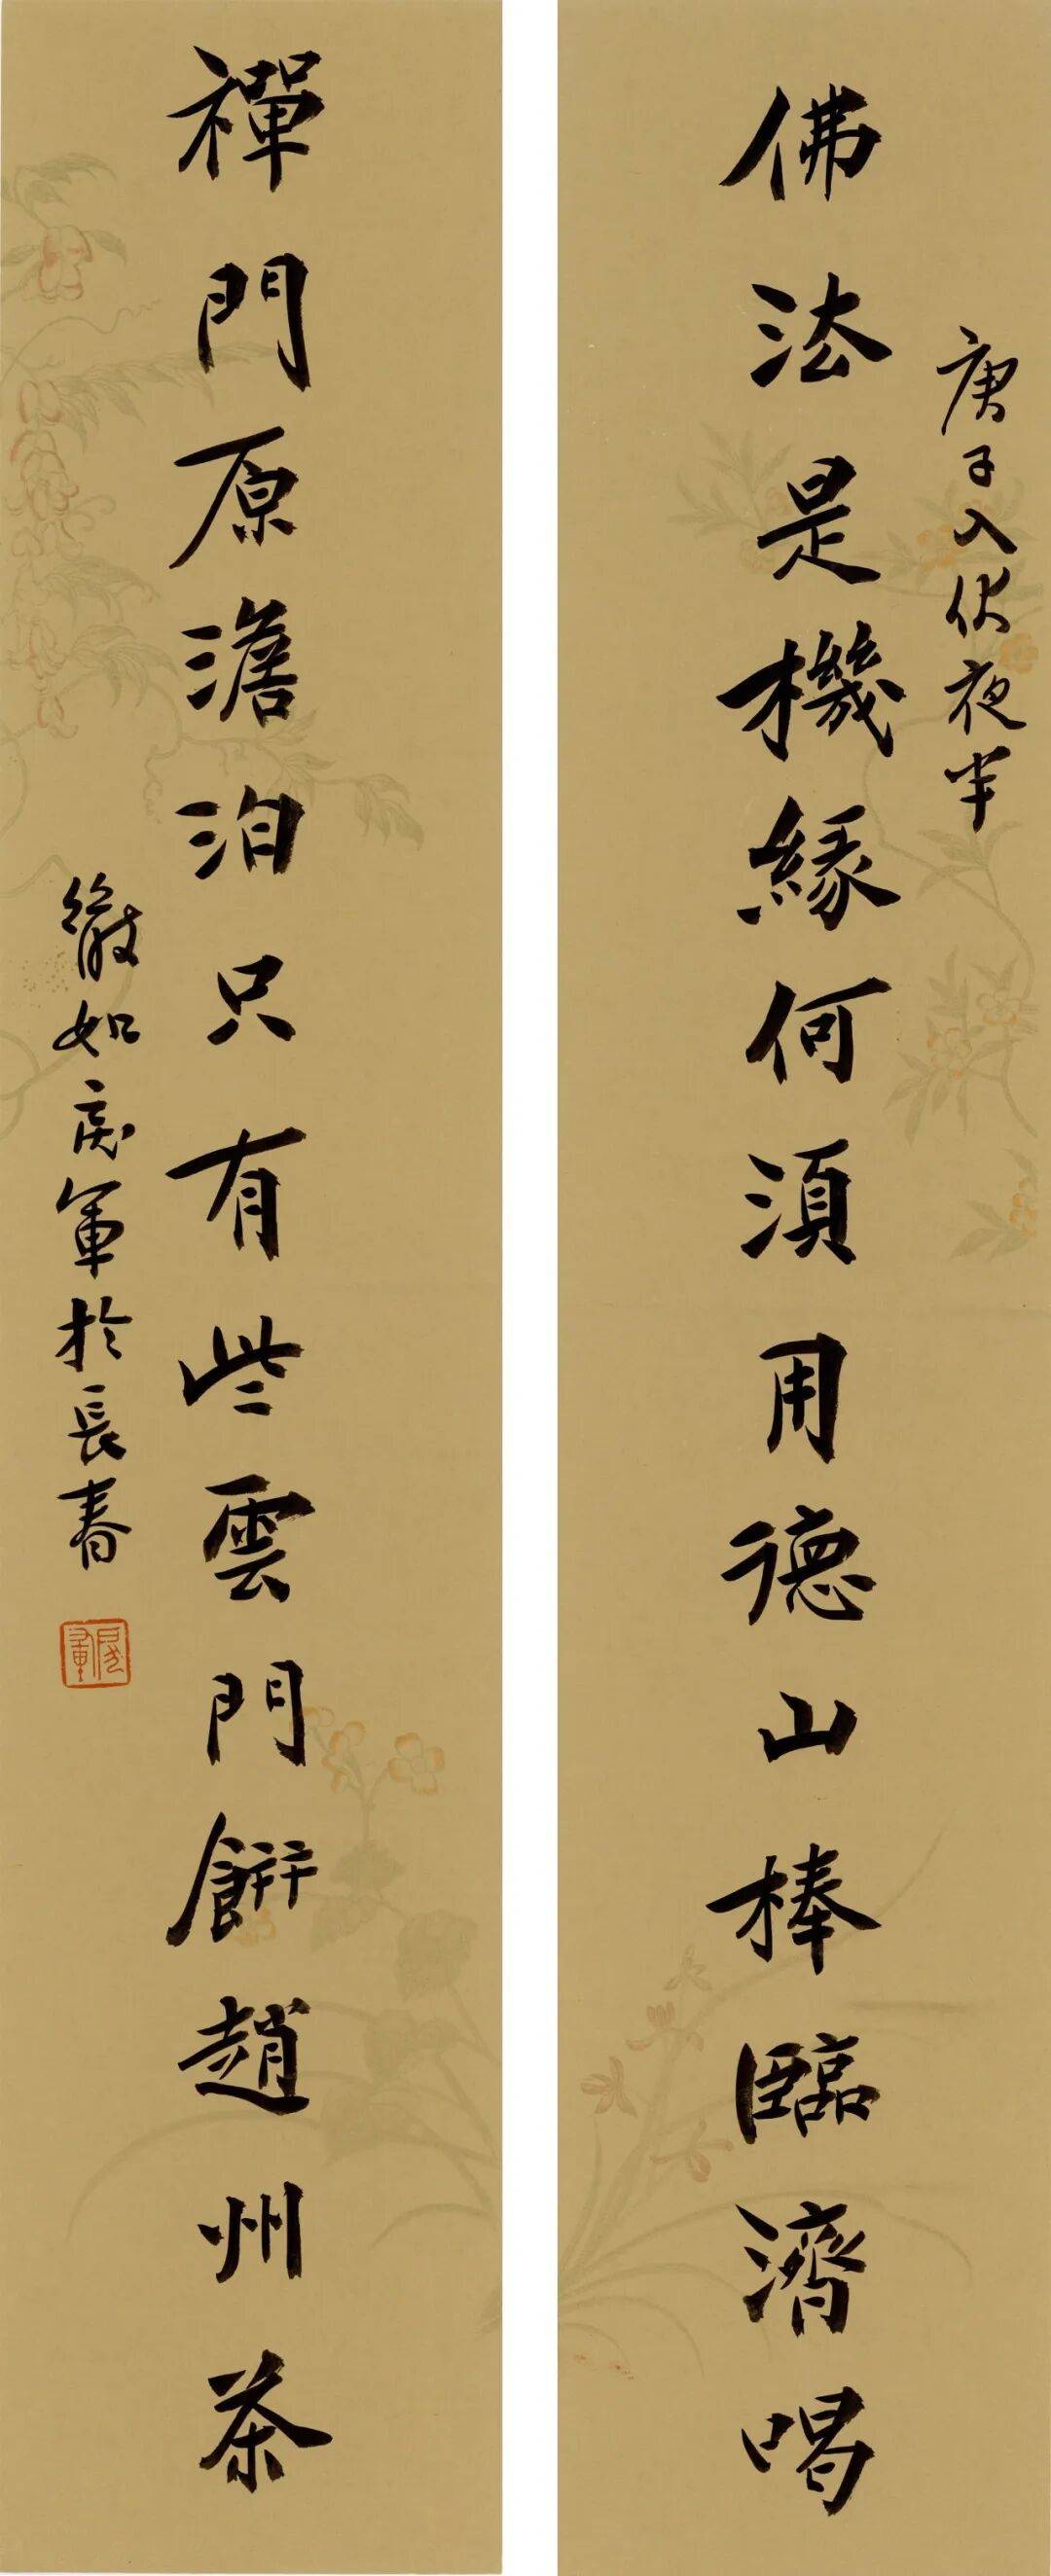 庚子入伏夜半
佛法是機緣何須用德山棒臨濟喝
禪門原澹泊只有些雲門餅趙州茶
徹如景軍於長春